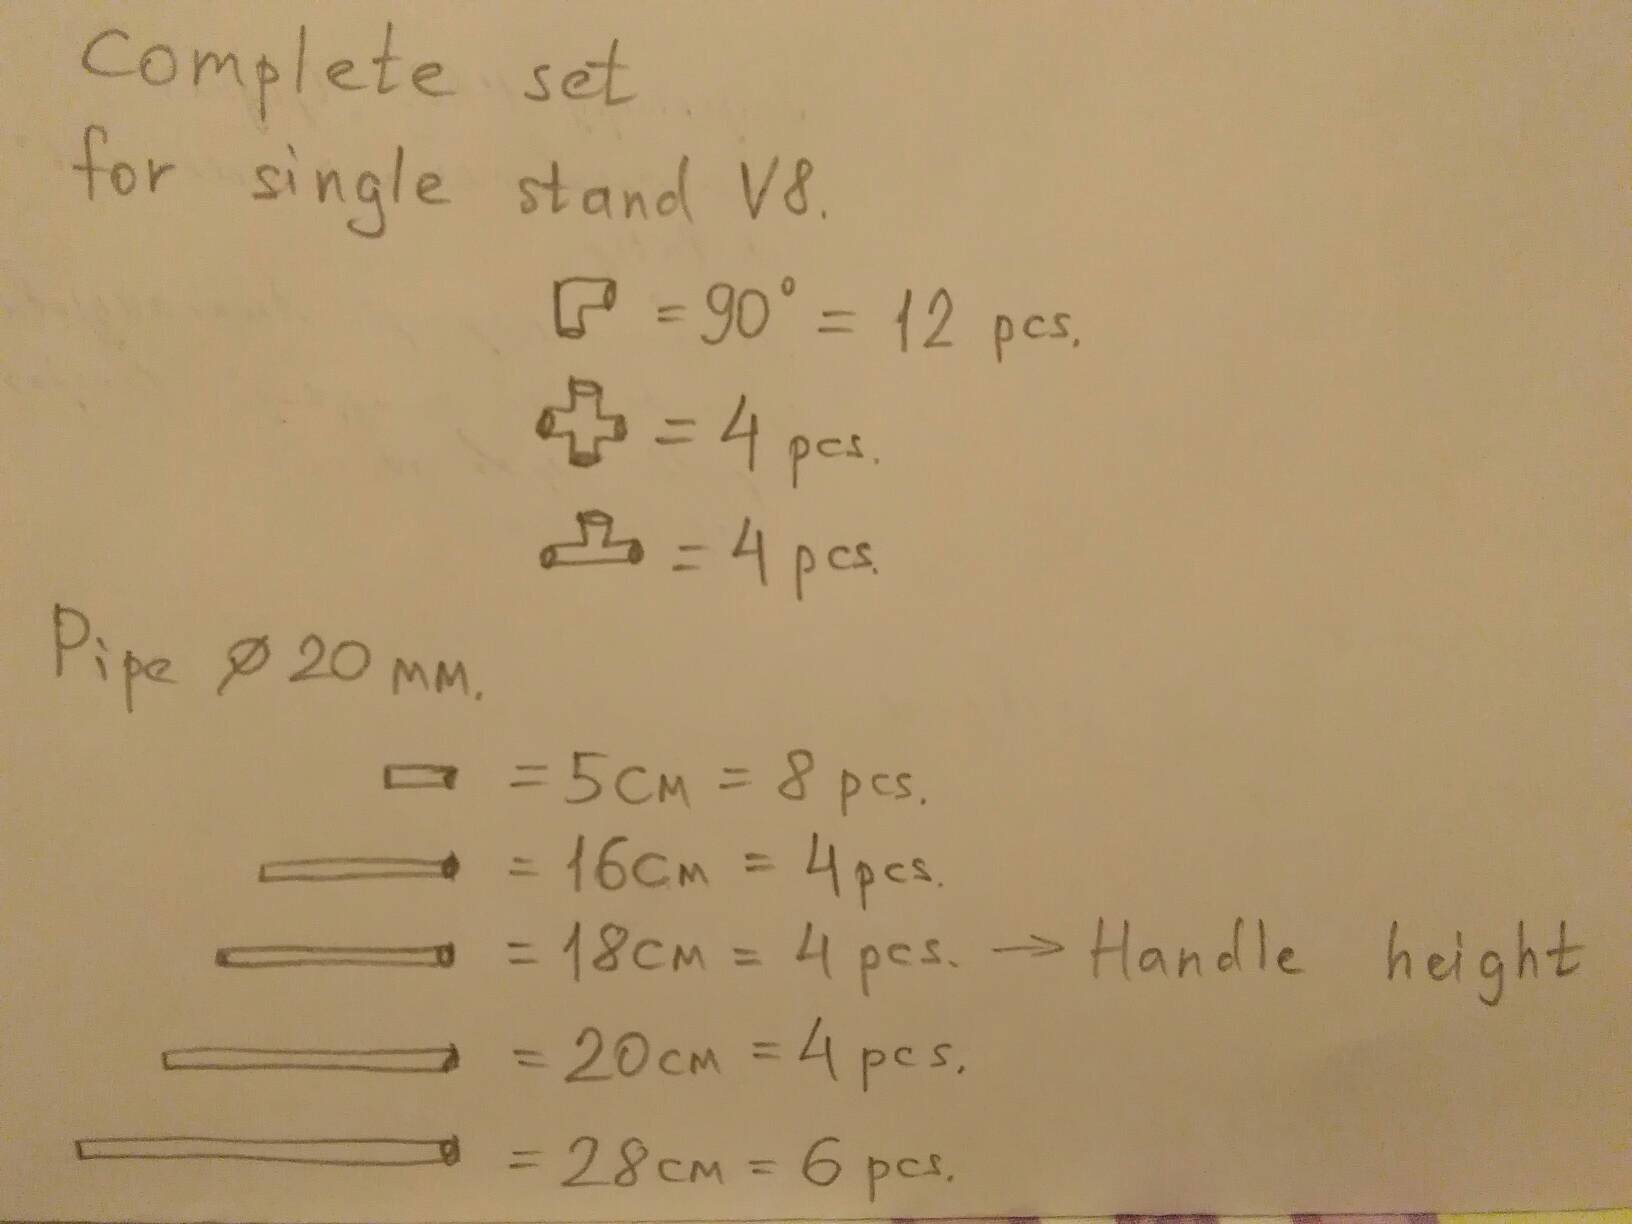 Complete set
for single stand V8.
= 90° = 12 pcs.
= 4 pcs.
= 4 pcs.
Pipe ø 20 мм.
= 5 см = 8 pcs.
= 16 см = 4 pcs.
= 18 см = 4 pcs. → Handle height
= 20 см = 4 pcs.
= 28 см = 6 pcs.